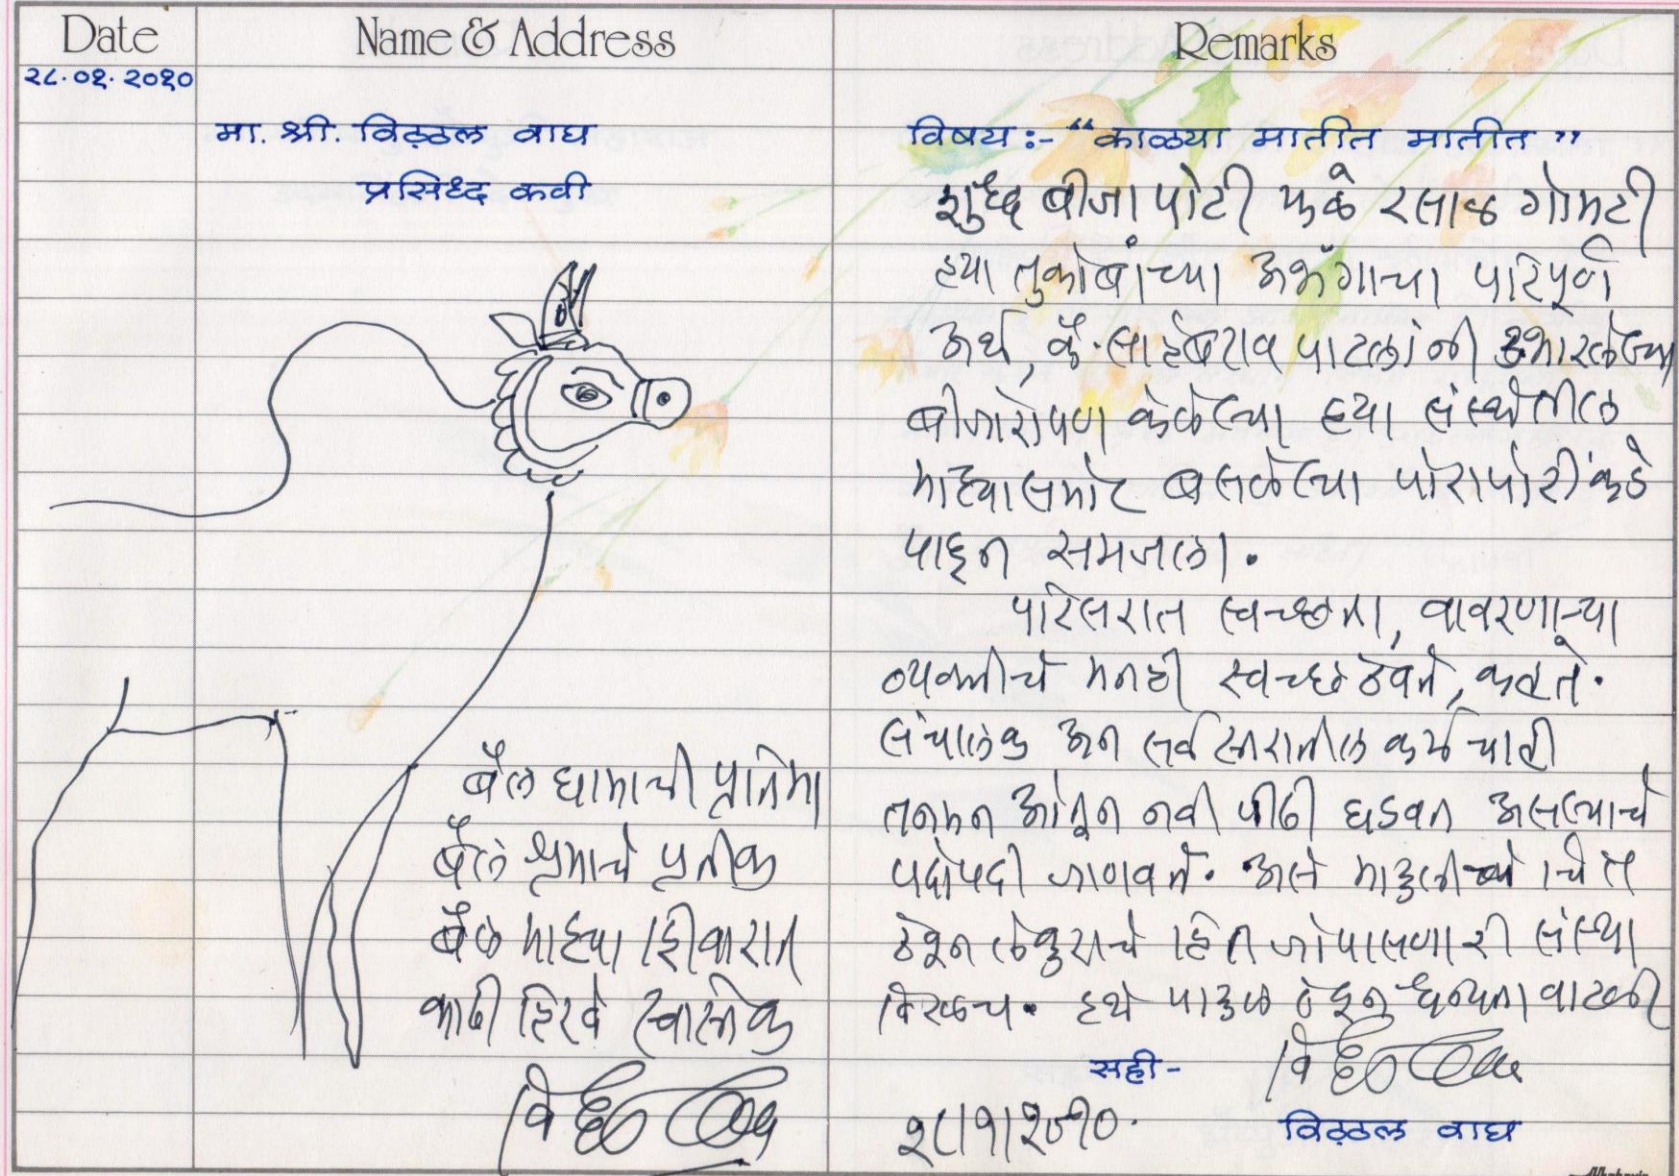 Date
Name & Address
Remarks
२८.०१.२०१०
मा. श्री. विठ्ठल वाघ
प्रसिध्द कवी
बैल घामाची प्रतिमा
बैल श्रमाचे प्रतीक
बैल माह्या शिवारात
काढी हिरवे स्वास्तीक
विषय:- “काळया मातीत मातीत”
शुध्द बीजा पोटी फळे रसाळ गोमटी
ह्या तुकोबांच्या अभंगाचा परिपूर्ण
अर्थ, कै. साहेबराव पाटलांनी उभारलेल्या
बीजारोपण केलेल्या ह्या संस्थेतील
माह्यासमोर बसलेल्या पोरापोरींकडे
पाहून समजला.
परिसरात स्वच्छता, वावरणाऱ्या
व्यक्तीचे मनही स्वच्छ ठेवते, करते.
संचालक अन सर्व स्तरातील कर्मचारी
तनमन ओतून नवी पीढी घडवत असल्याचे
पदोपदी जाणवते. असे माऊलीचे चित्त
ठेवून लेकुराचे हित जोपासणारी संस्था
विरळच. इथे पाऊल ठेवून धन्यता वाटली
सही-
२८।१।२०१०.
विठ्ठल वाघ